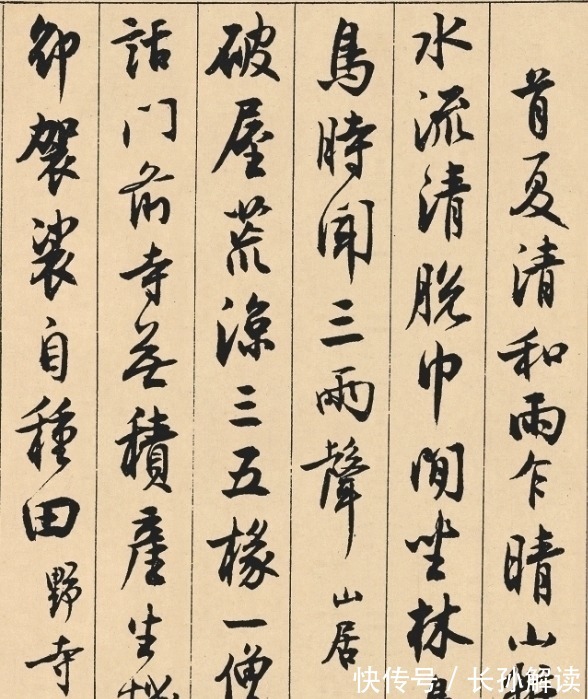 首夏清和雨乍晴山
水流清脱巾閒坐林
鳥時聞三兩聲 山居
破屋荒涼三五椽一僧
話门前寺無積產生
卸袈裟自種田 野寺
快传号/长孙解读